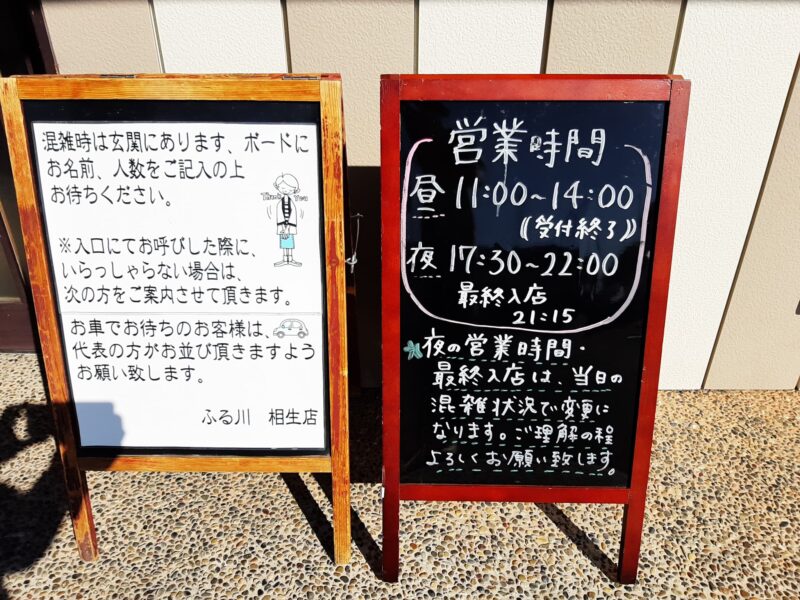 混雑時は玄関にあります、ボードに
お名前、人数をご記入の上
お待ちください。
Thank You
※入口にてお呼びした際に、
いらっしゃらない場合は、
次の方をご案内させて頂きます。
お車でお待ちのお客様は、
代表の方がお並び頂きますよう
お願い致します。
ふる川 相生店
営業時間
昼 11:00~14:00
((受付終了))
夜 17:30~22:00
最終入店
21:15
夜の営業時間・
最終入店は、当日の
混雑状況で変更に
なります。ご理解の程
よろしくお願い致します。